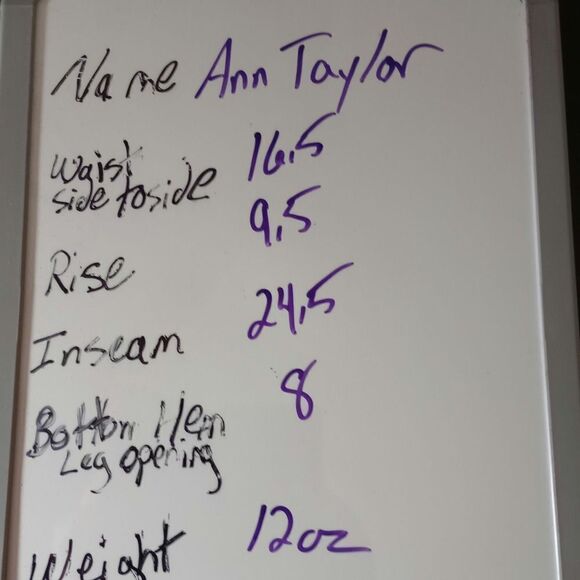 Name Ann Taylor
Waist 16.5
side to side
Rise 9.5
Inseam 24.5
Bottom Hem 8
Leg opening
Weight 12oz